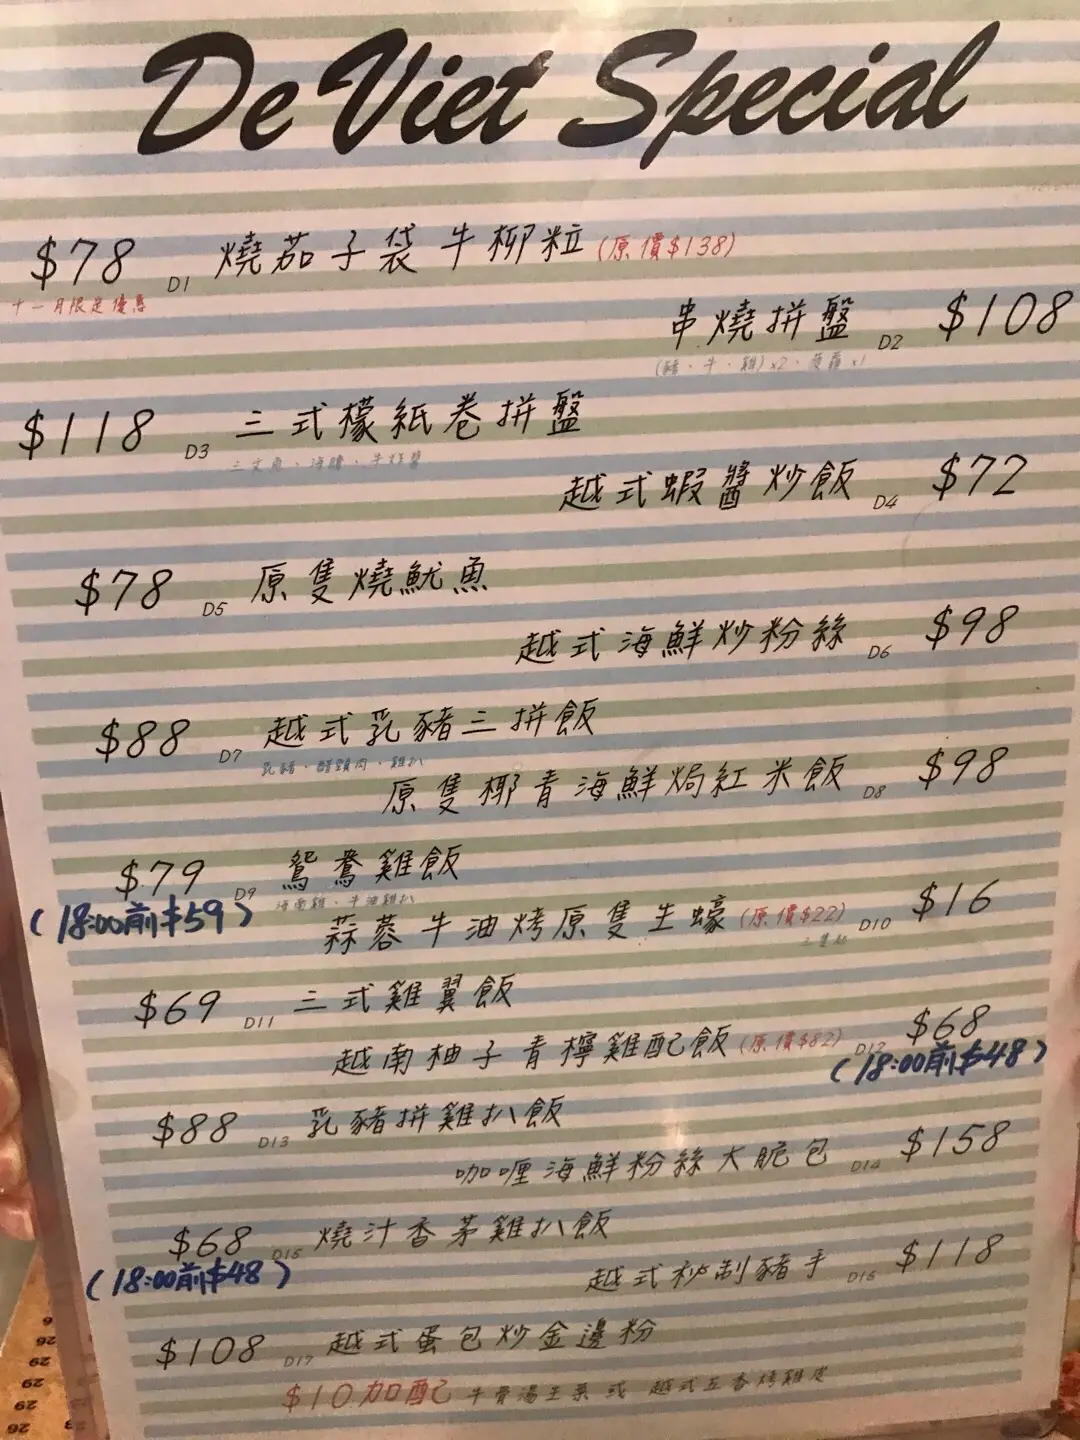 De Viet Special
$78 D1 燒茄子袋牛柳粒 (原價$138)
十一月限定優惠
串燒拼盤 D2 $108
(豬、牛、雞)x2、菠蘿x1
$118 D3 三式檬紙卷拼盤
三文魚、海鮮、牛
越式蝦醬炒飯 D4 $72
$78 D5 原隻燒魷魚
越式海鮮炒粉絲 D6 $98
$88 D7 越式乳豬三拼飯
乳豬、豬頸肉、雞扒
原隻椰青海鮮焗紅米飯 D8 $98
$79 D9 鴛鴦雞飯
(18:00前$59)
海南雞、牛油雞扒
蒜蓉牛油烤原隻生蠔 (原價$22) D10 $16
三隻起
$69 D11 三式雞翼飯
越南柚子青檸雞配飯 (原價$82) D12 $68
(18:00前$48)
$88 D13 乳豬拼雞扒飯
咖喱海鮮粉絲大脆包 D14 $158
$68 D15 燒汁香茅雞扒飯
(18:00前$48)
越式秘制豬手 D16 $118
$108 D17 越式蛋包炒金邊粉
$10加配 牛骨湯生菜或 越式五香烤雞皮